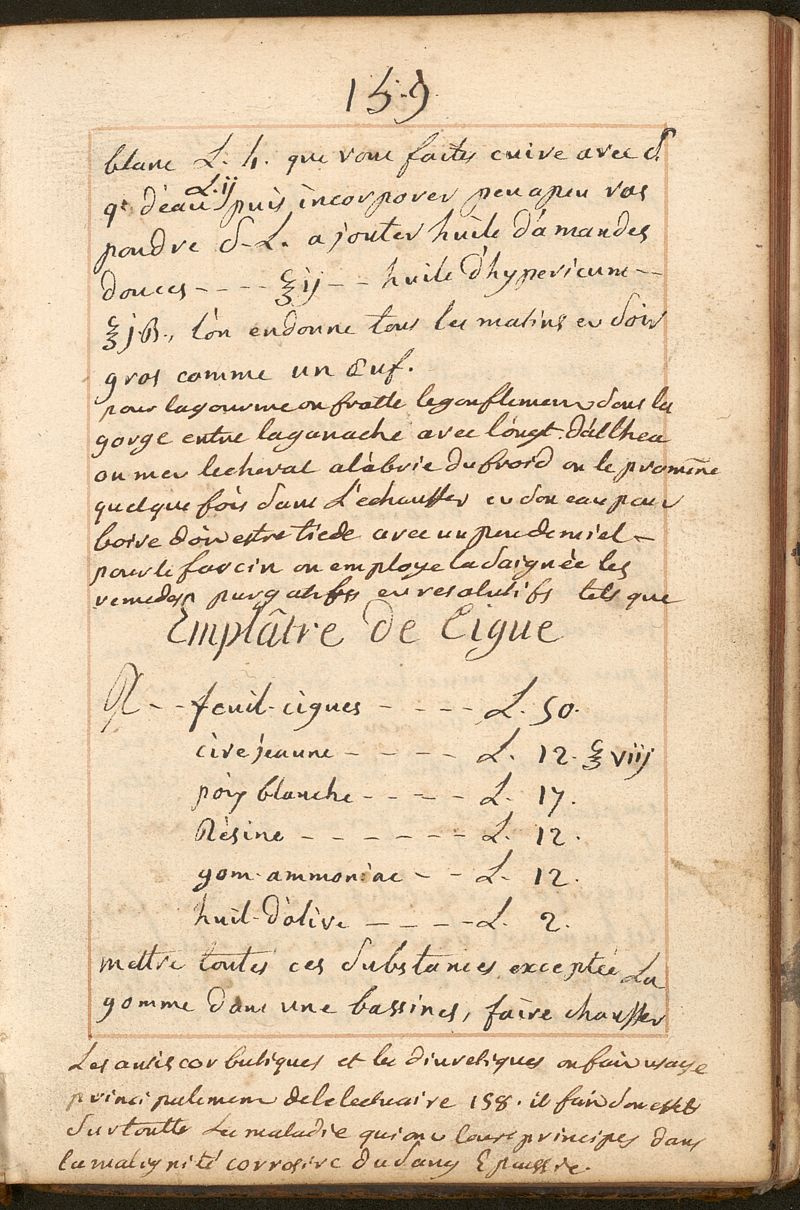 159
blanc L. 4. que vous faites cuire avec d.
q.^r d'eau L.ij puis incorporer peu a peu vos
poudre d-L. ajouter huile d'amandes
douces ---- ℥ij -- huile d'hypericum --
℥j.ß., l'on en donne tous les matins et soir
gros comme un œuf.
pour la gourme on frotte le gonflement dous la
gorge entre la ganache avec l'ongt. d'althea
on met le cheval a l'abrie du froid on le promene
quelque fois dans l'echauffer et son eau pour
boire doit estre tiede avec un peu de miel -
pour le farcin on employe la saignée les
remedes purgatifs et resolutifs tels que
Emplâtre de Cigue
R -- feuil-cigues ---- L. 50.
cire jeaune ---- L. 12. ℥ viij
poix blanche ---- L. 17.
Résine ------ L. 12.
gom-ammoniac -- L. 12.
huil-d'olive ---- L. 2.
mettre toutes ces substances exceptée La
gomme dans une bassines, faire chauffer
Les antiscorbutiques et les diuretiques on fait usage
principalement de lelectuaire 158. il fait son effet
sur toutte les maladie qui ont leurs principes dans
la malignité corrosive du sang Epaissie.